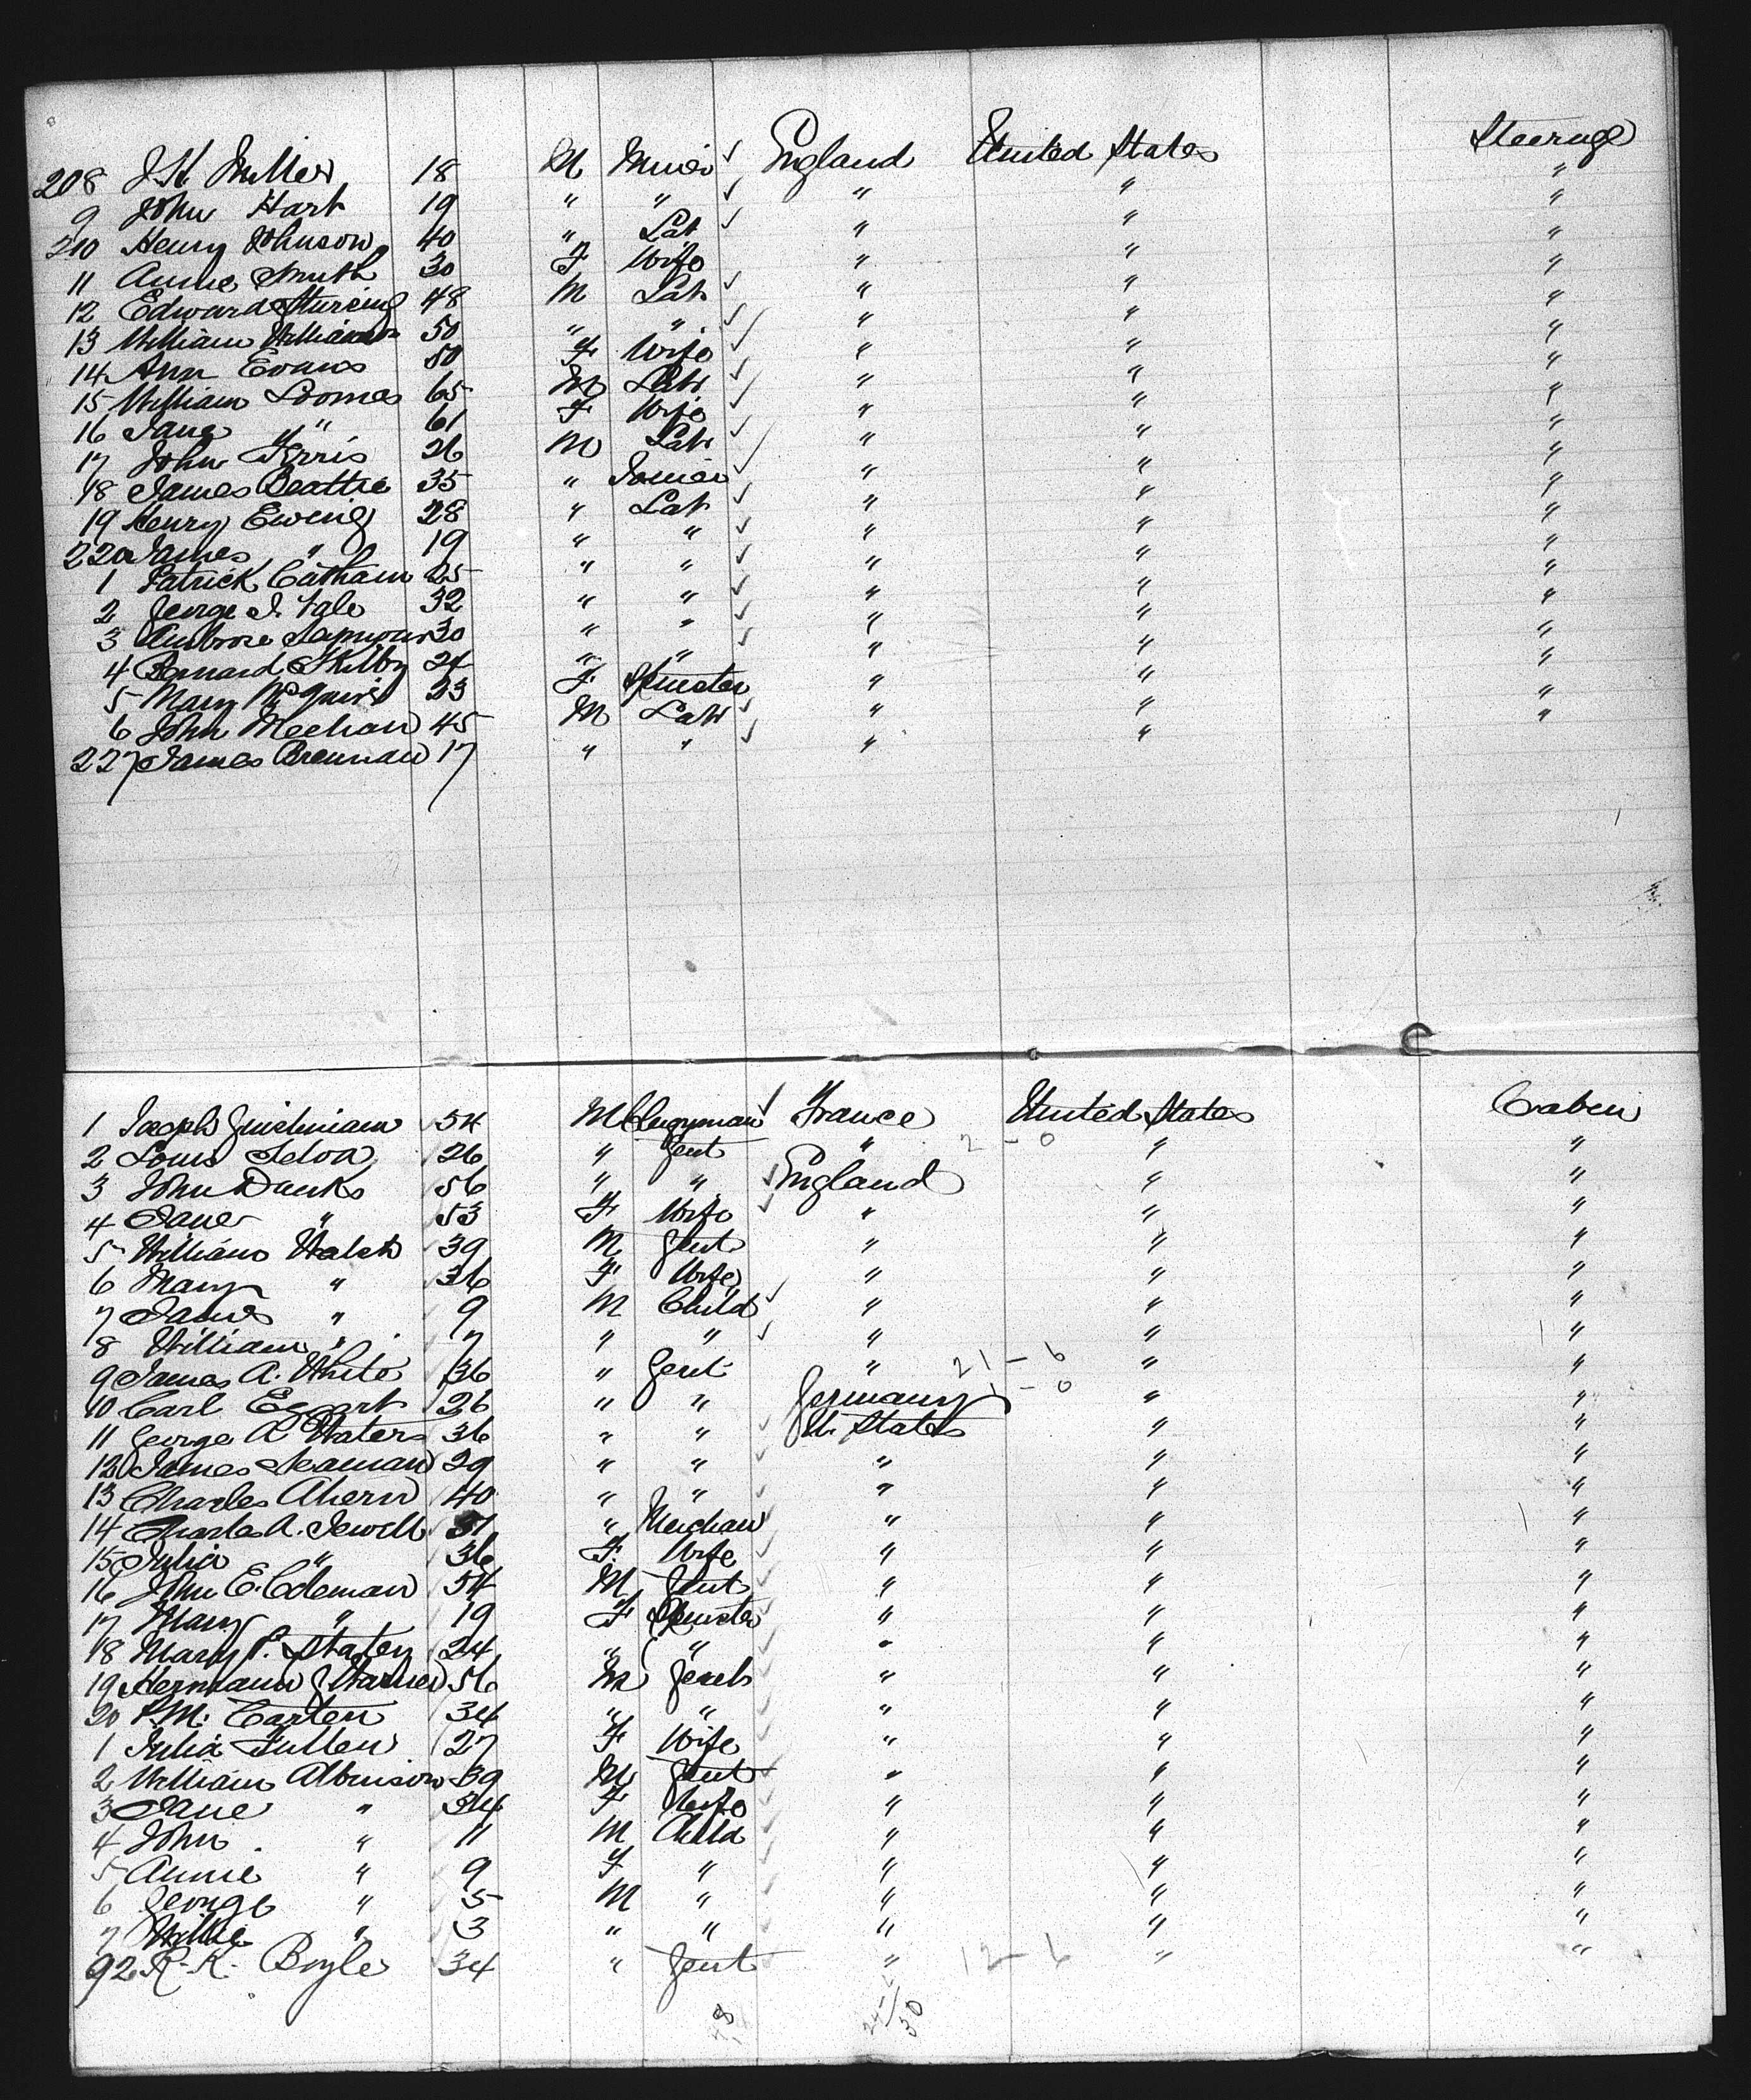 208 J H Miller 18 M Miner England United States Steerage
9 John Hart 19 " " " " "
210 Henry Johnson 40 " Lab " " "
11 Annie Smith 30 F Wife " " "
12 Edward 48 M Lab " " "
13 William Williams 50 " " " " "
14 Ann Evans 50 F Wife " " "
15 William Loomes 65 M Lab " " "
16 Jane " 61 F Wife " " "
17 John Ferris 26 M Lab " " "
18 James Beattie 35 " " " "
19 Henry Ewing 28 " Lab " " "
220 James " 19 " " " " "
1 Patrick 25 " " " " "
2 George 32 " " " " "
3 Ambrose Seymour 30 " " " " "
4 Bernard Skilby 24 " " " " "
5 Mary 23 F Spinster " " "
6 John Meehan 45 M Lab " " "
227 James Brennan 17 " " " " "
1 Joseph 54 M Clergyman France United States Cabin
2 Louis 26 " Gent " 2 - 0 " "
3 John Danks 56 " " England " "
4 Jane " 53 F Wife " " "
5 William Walsh 39 M Gent " " "
6 Mary " 36 F Wife " " "
7 James " 9 M Child " " "
8 William " 7 " " " " "
9 James A. White 36 " Gent " 21 - 6 " "
10 Carl Eggart 26 " " Germany 1 - 0 " "
11 George A Waters 36 " " U. States " "
12 James Seaman 29 " " " " "
13 Charles Ahern 40 " " " " "
14 Charles A. Jewell 51 " Merchan " " "
15 Julia " 36 F. Wife " " "
16 John E. Coleman 54 M Gent " " "
17 Mary " 19 F Spinster " " "
18 Mary P. Staten 24 " " " " "
19 Hermann 56 M Gent " " "
20 P.M. Carten 34 " " " " "
1 Julia Fullen 27 F Wife " " "
2 William Albinson 39 M Gent " " "
3 Jane " 34 F Wife " " "
4 John " 11 M Child " " "
5 Annie " 9 F " " " "
6 George " 5 M " " " "
7 Willie " 3 " " " " "
92 R. K. Boyle 34 " Gent " 12 - 6 " "